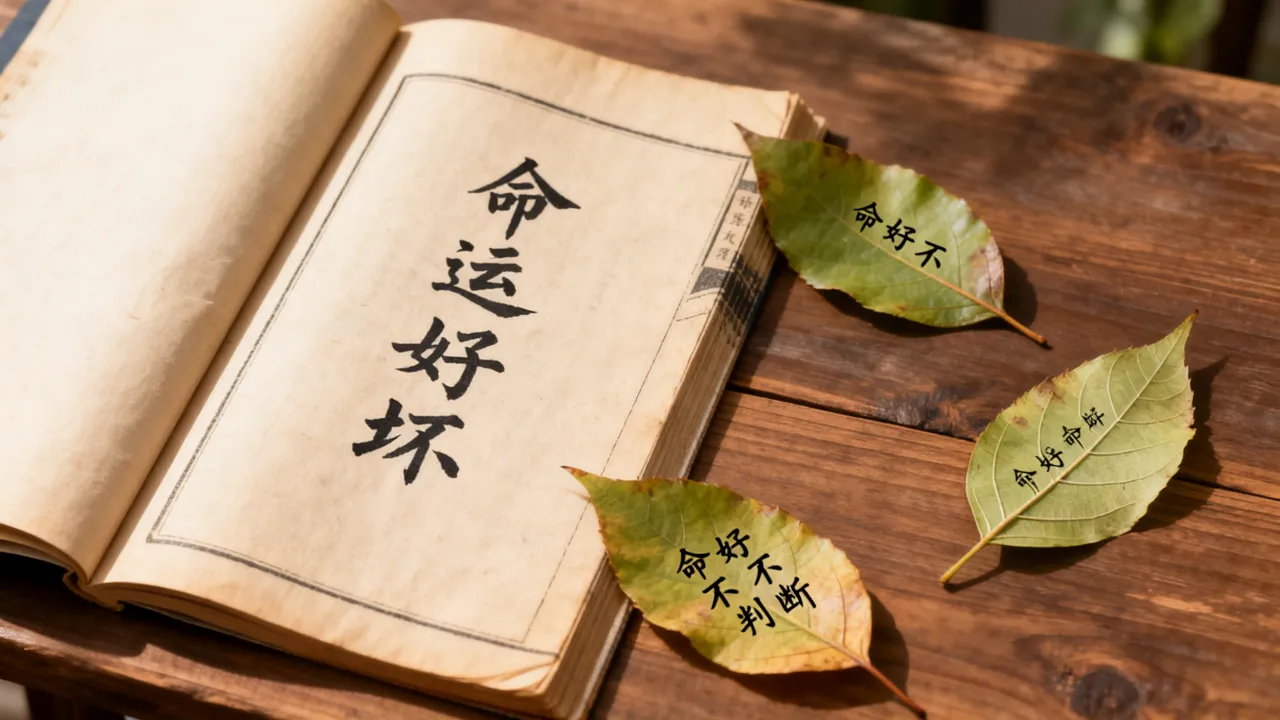 命运好坏
命好不
命好命
命好
不不
判断